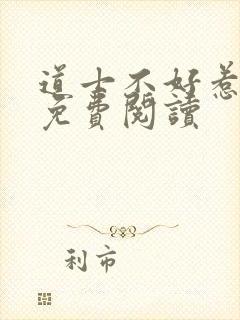 道士不好惹
免費閱讀
利市